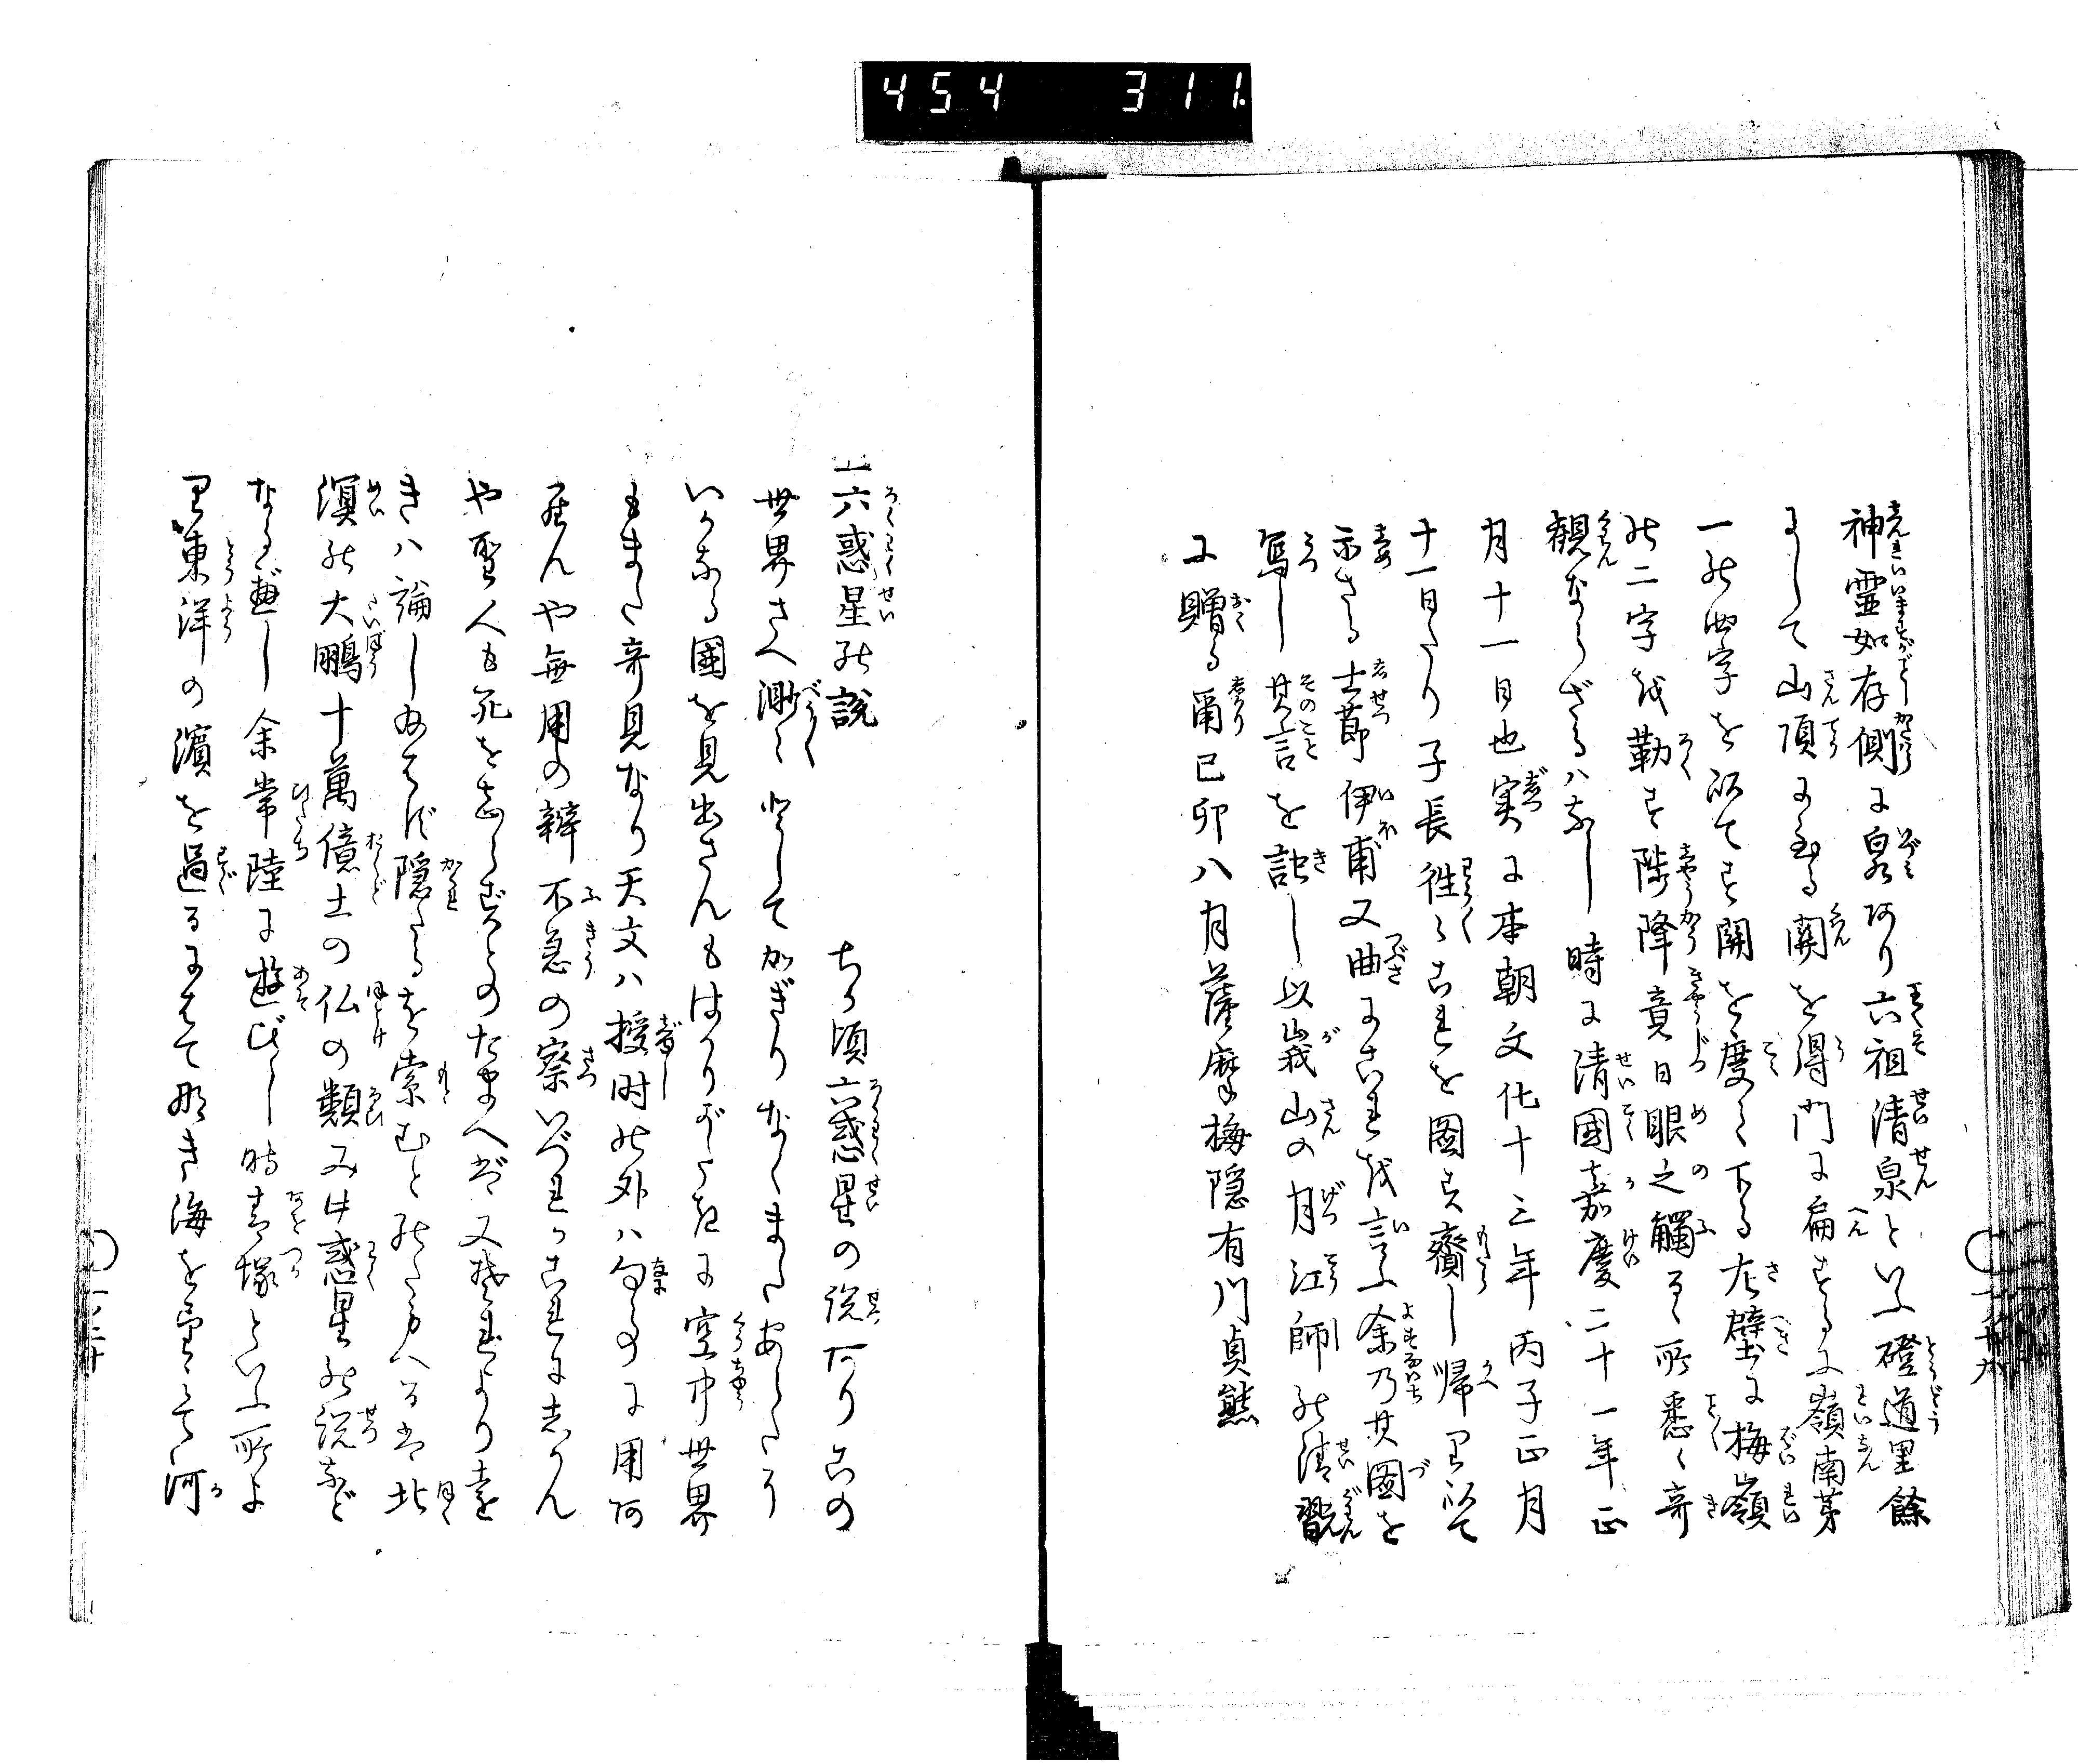 454 311.
神霊如存側に泉あり六祖清泉といふ磴道里餘
にして山頂に至る関を得門に扁するに嶺南第
一の四字を以てす関を度て下る左壁に梅嶺
の二字を勒す陟降竟日眼之觸るゝ所悉く奇
観ならざるハなし時に清國嘉慶二十一年正
月十一日也実に本朝文化十三年丙子正月
十一日なり子長往々これを圖す齎し帰り以て
示さる士節伊甫又曲にこれを言ふ余乃其圖を
写し其言を誌し以峩山の月江師の清翫
に贈る爾己卯八月薩摩梅隠有川貞熊
一六惑星の説 ちか頃六惑星の説ありこの
世界さへ渺々としてかぎりなくまたあらたう
いかなる國を見出さんもはかりがたきに空中世界
もまた奇見なり天文ハ授时の外ハ何事に用ひ
んや無用の辨不急の察いづれかこれにしかん
や聖人も死をしらずとのたまへば又それより遠
きハ論し給はず隠たるを索むとのたまへるは北
溟の大鵬十萬億土の仏の類み此惑星の説など
なるべし余常陸に遊びし時青塚といふ所よ
り東洋の濱を過るにはてなき海をみて河